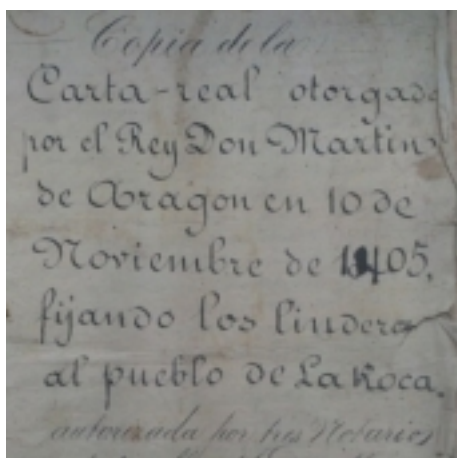 Copia de la
Carta-real otorgada
por el Rey Don Martin
de Aragon en 10 de
Noviembre de 1405,
fijando los linderos
al pueblo de La Roca,
autorizada por tres Notarios